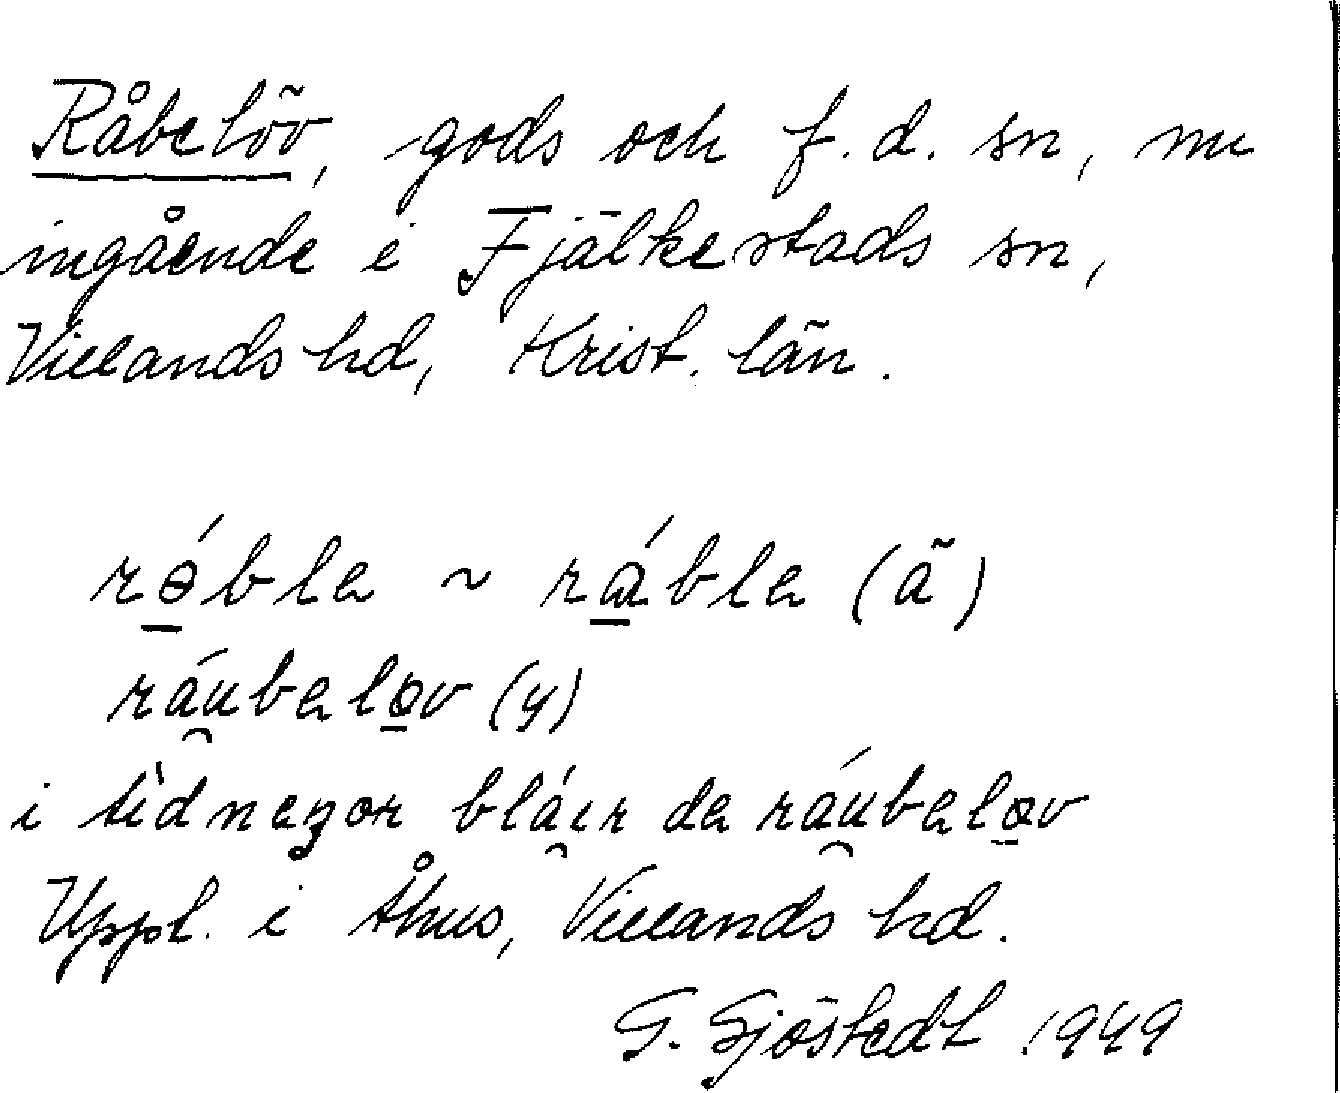 Råbelöv, gods och f.d. sn, nu
ingående i Fjälkestads sn,
Villands hd, Krist. län.
rə́ble ~ rábla (ä)
ráubeləv (y)
i tìdneŋor bláir de ráubeləv
Uppl. i Åhus, Villands hd.
G. Sjöstedt 1949